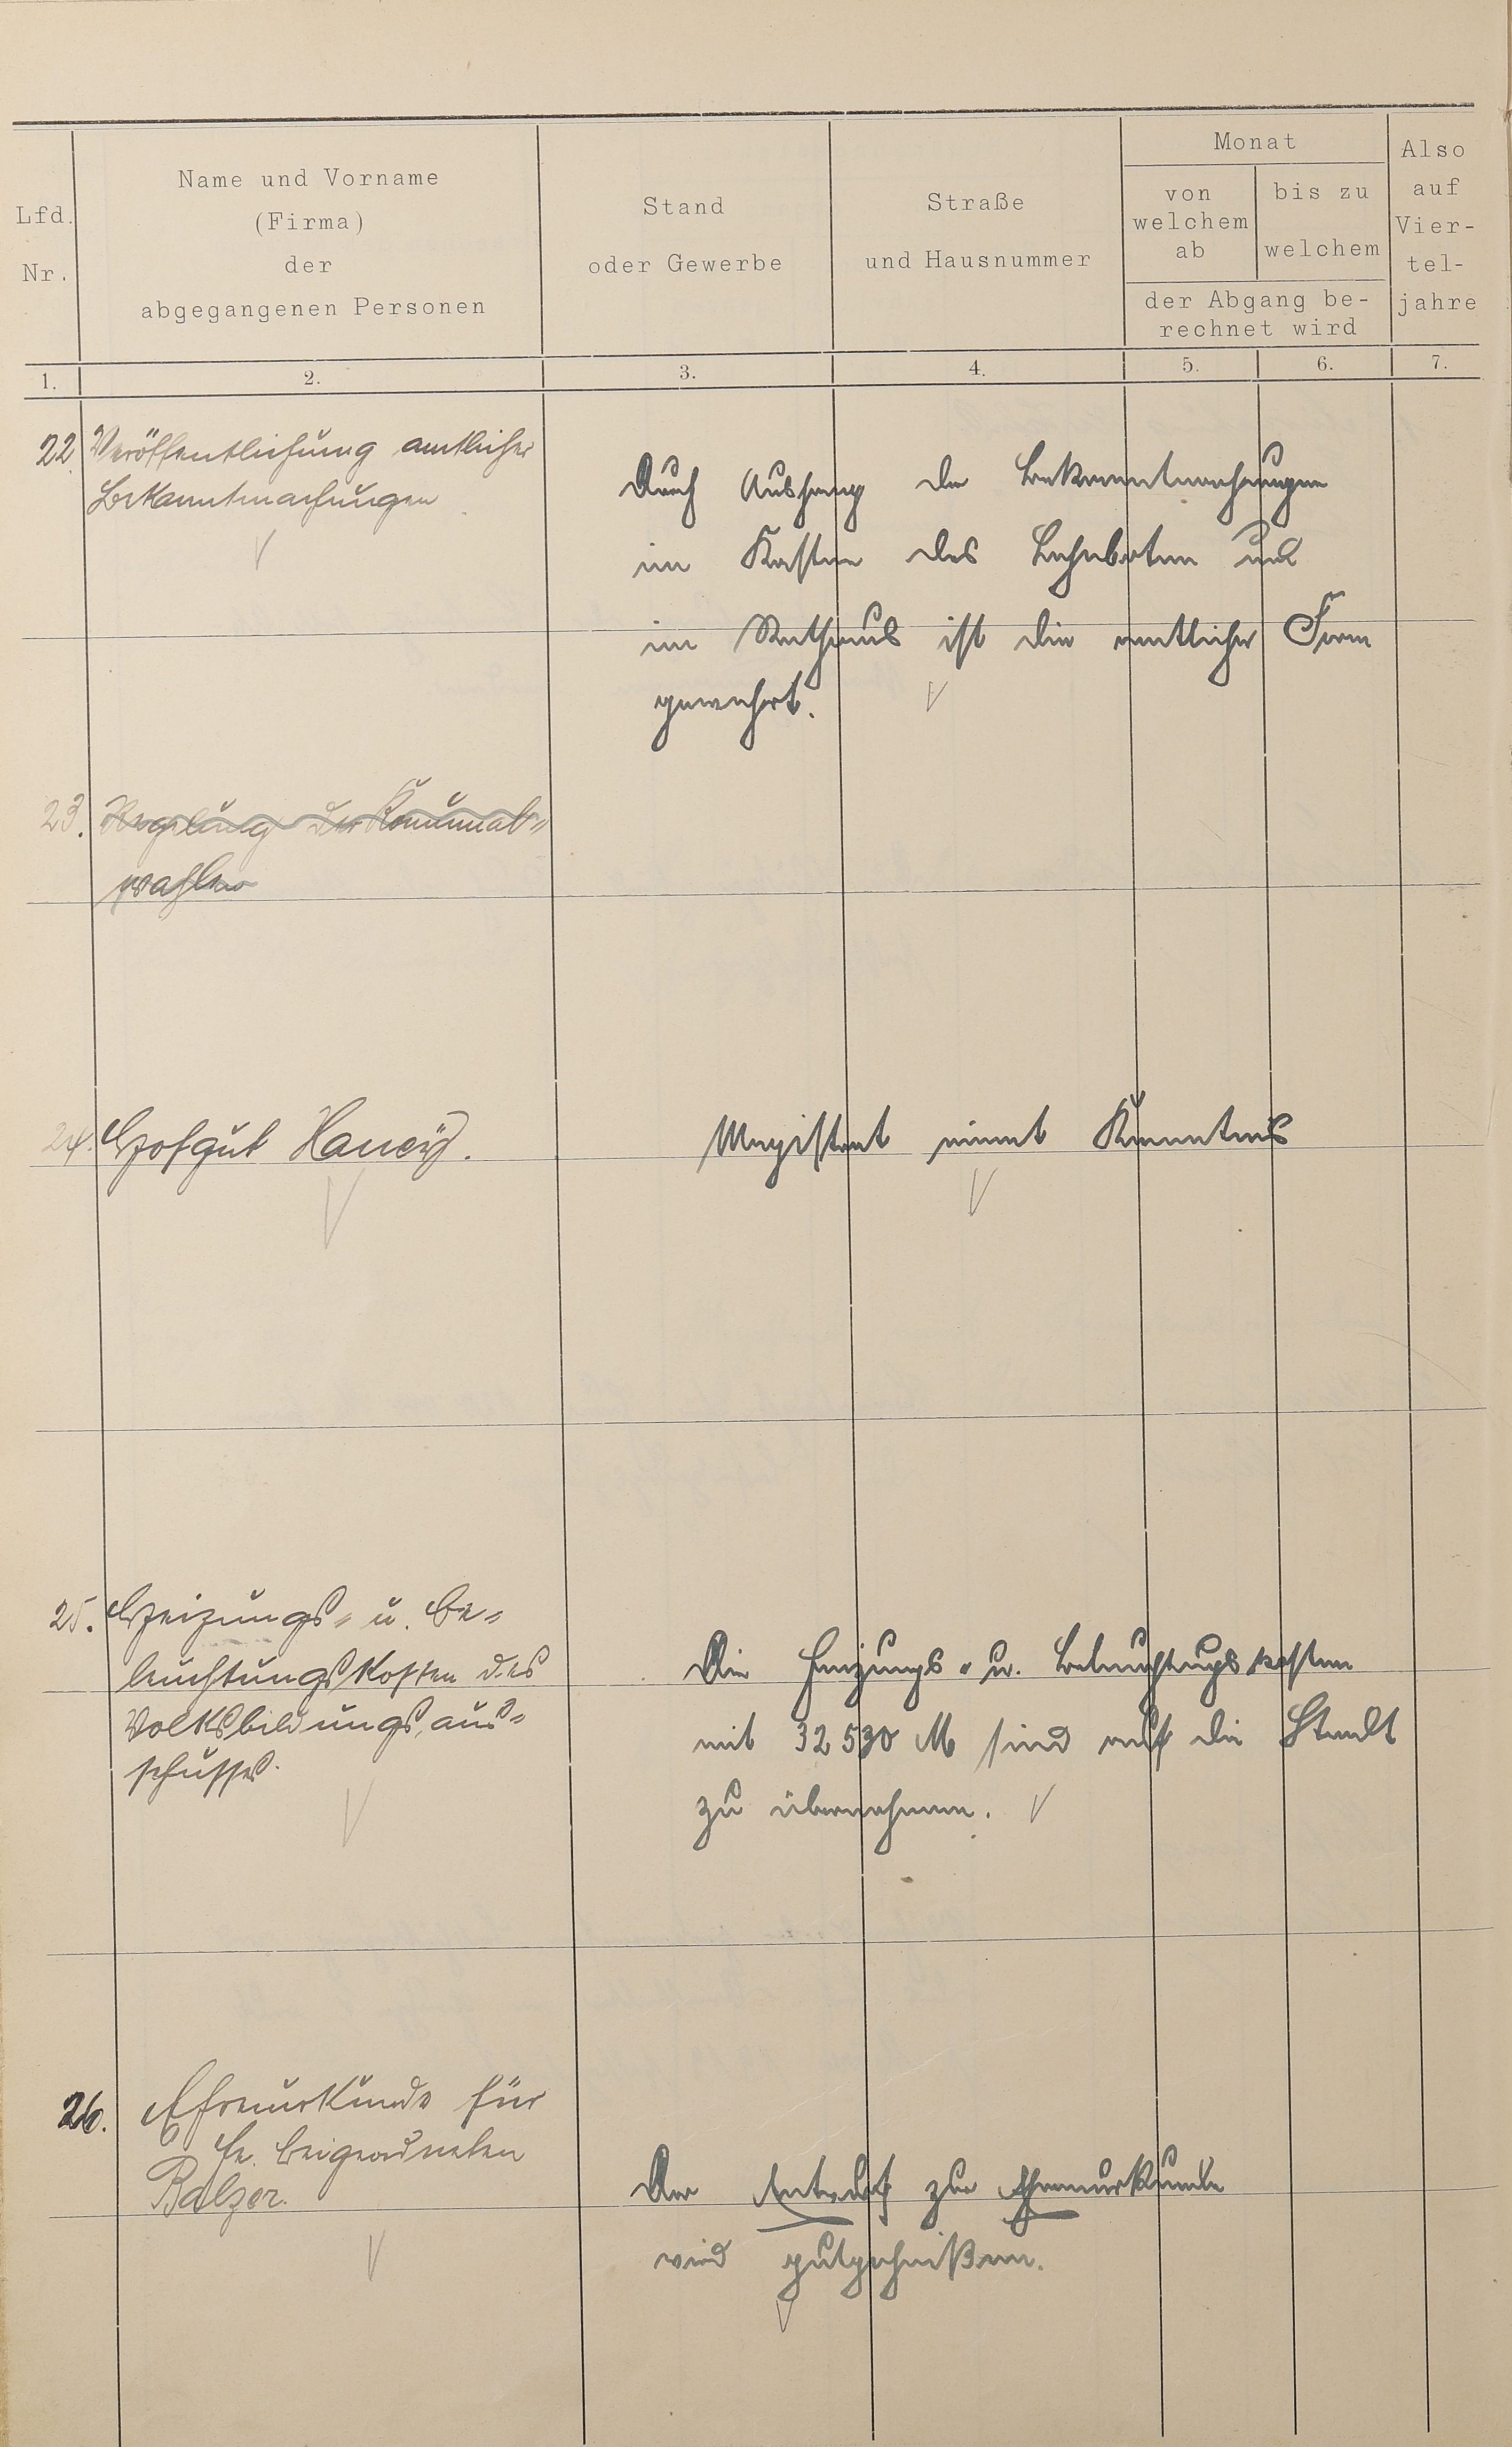 Lfd.
Nr.
Name und Vorname
(Firma)
der
abgegangenen Personen
Stand
oder Gewerbe
Straße
und Hausnummer
Monat
von
welchem
ab
bis zu
welchem
der Abgang be-
rechnet wird
Also
auf
Vier-
tel-
jahre
1. 2. 3. 4. 5. 6. 7.
22 Veröffentlichung amtlicher
Bekanntmachungen
Durch Aushang der Bekanntmachungen
im Kasten des Lahnboten und
im Rathaus ist die amtliche Form
gewahrt.
23. Regelung der Kommunal-
wahlen
24. Hofgut Hauch.
Magistrat nimmt Kenntnis
25. Heizungs- u. Be-
leuchtungskosten des
Volksbildungsaus-
schusses.
Die Heizungs- u. Beleuchtungskosten
mit 32530 M sind auf die Stadt
zu übernehmen.
26. Ehrenurkunde für
H. Beigeordneten
Balzer.
Der Entwurf zur Ehrenurkunde
wird gutgeheißen.